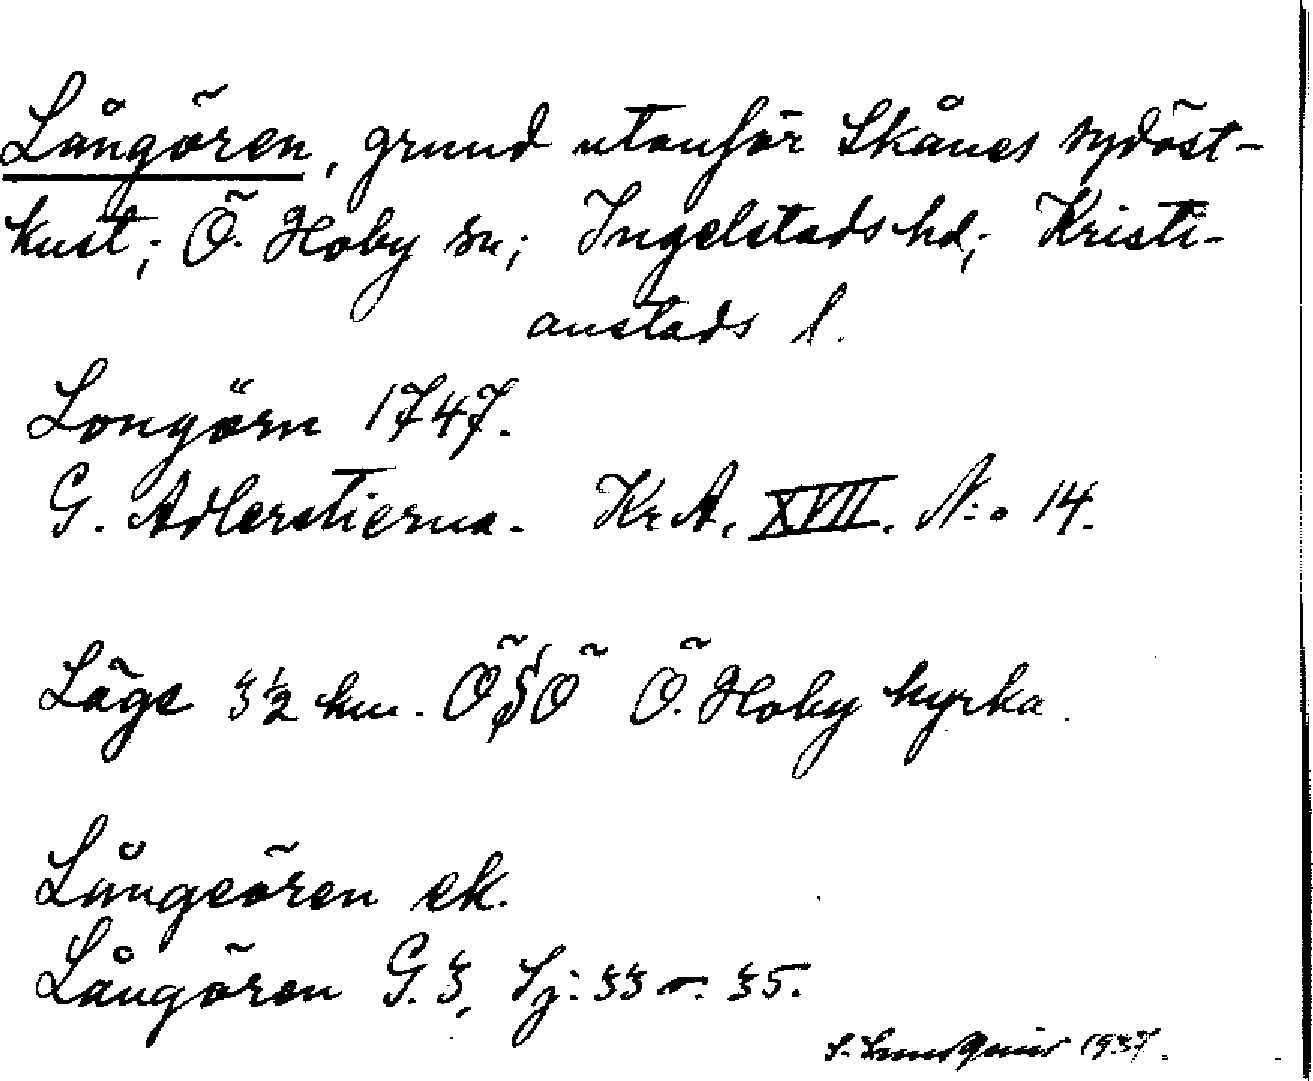 Långören, grund utanför Skånes sydöst-
kust; Ö. Hoby sn; Ingelstads hd; Kristi-
anstads l.
Longörn 1747.
G. Adlerstierna. Kr. A. XVII. N:o 14.
Läge 3½ km. ÖSÖ Ö. Hoby kyrka.
Långeören ek.
Långören G. 3, Sj: 33 o. 35.
1937.